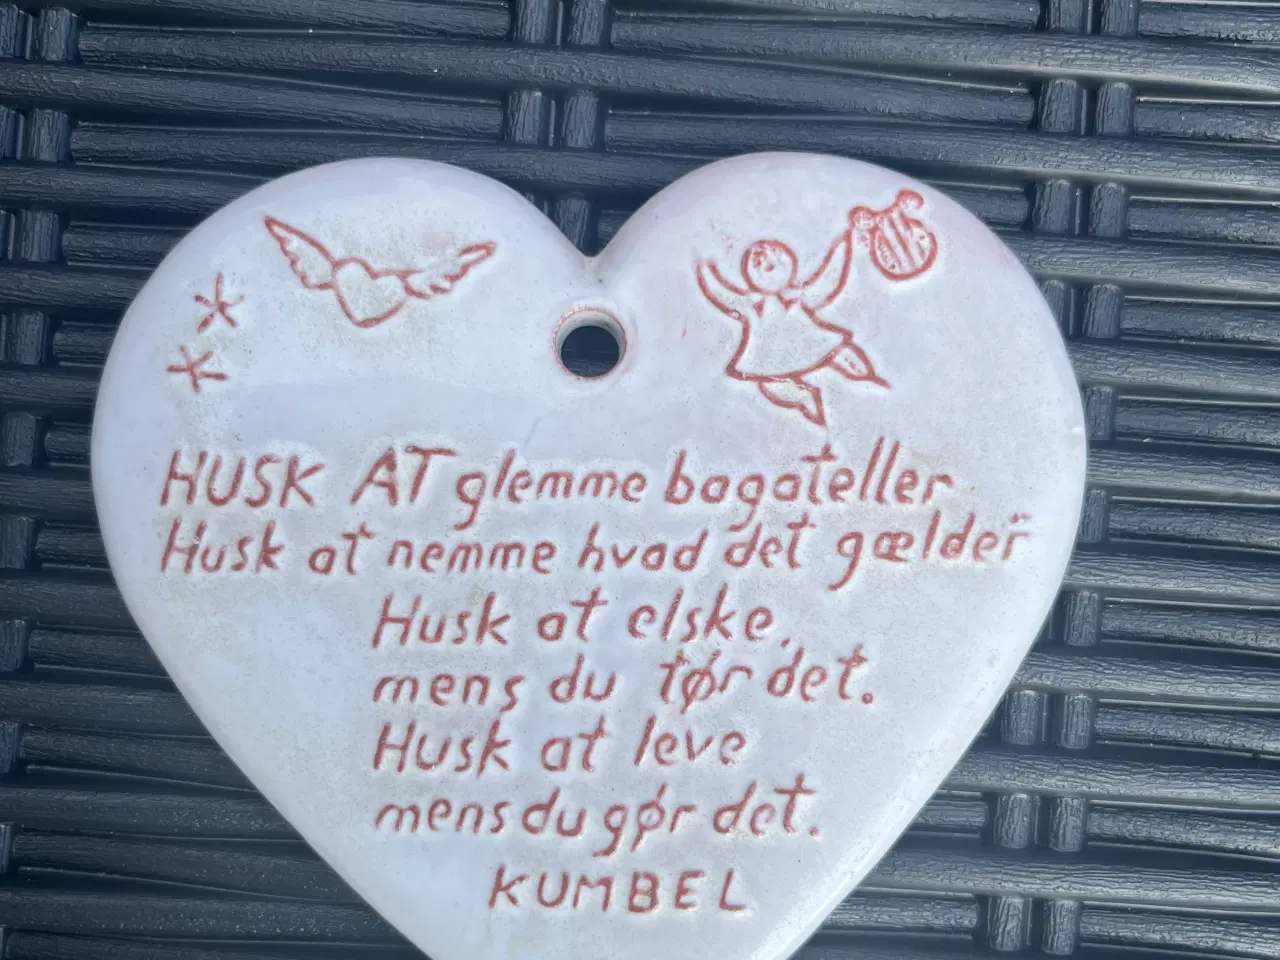 HUSK AT glemme bagateller
Husk at nemme hvad det gælder
Husk at elske,
mens du tør det.
Husk at leve
mens du gør det.
KUMBEL